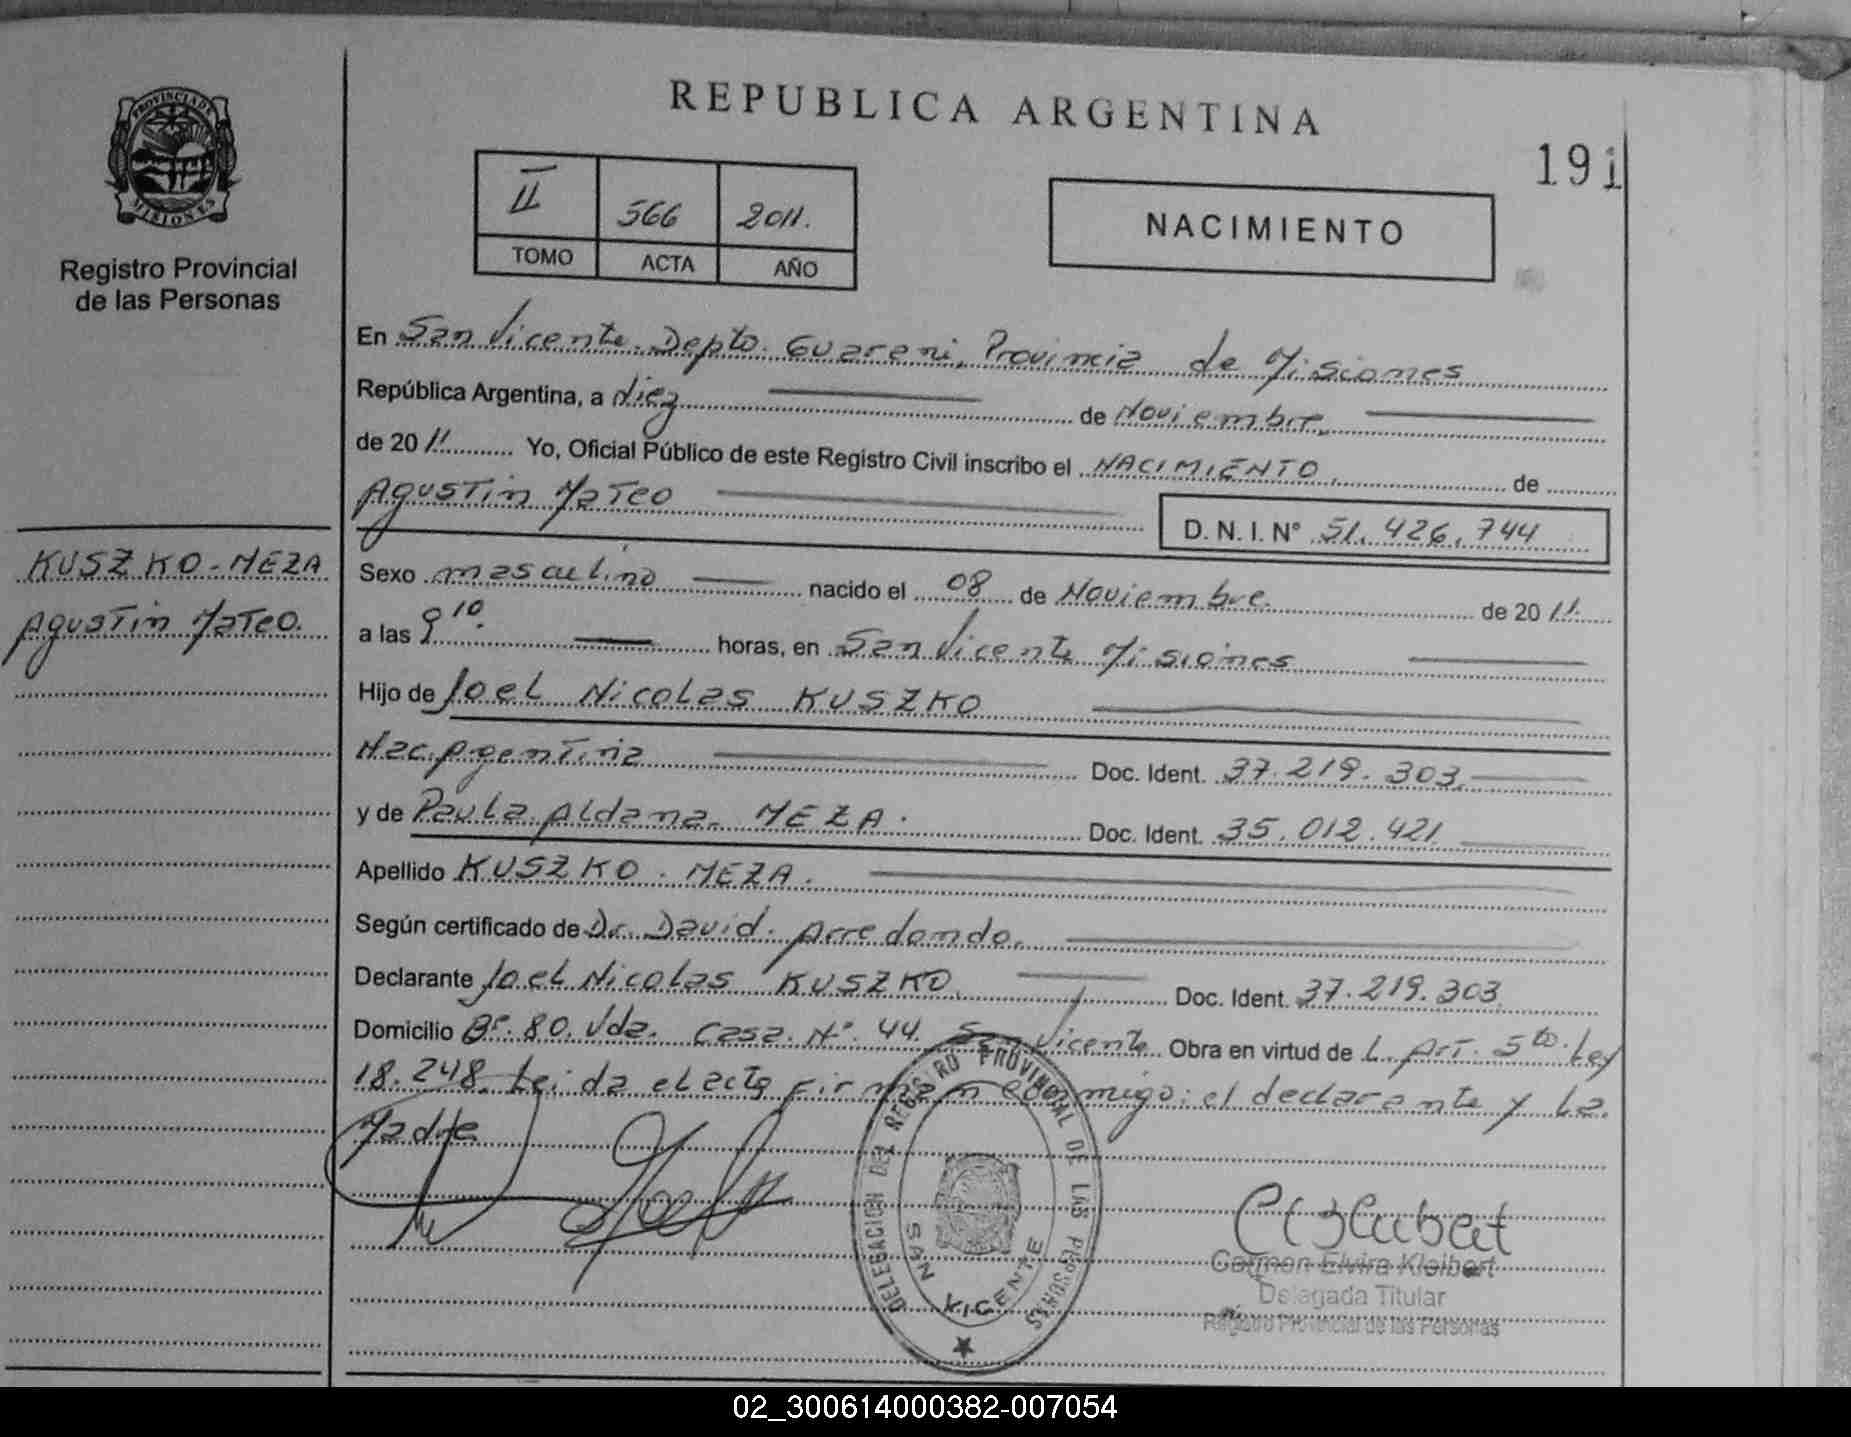 PROVINCIA DE
MISIONES
Registro Provincial
de las Personas
KUSZKO-MEZA
Agustin Mateo.
REPUBLICA ARGENTINA
191
II 566 2011.
TOMO ACTA AÑO
NACIMIENTO
En San Vicente. Depto. Guarani, Provincia de Misiones
República Argentina, a diez de Noviembre.
de 2011 Yo, Oficial Público de este Registro Civil inscribo el NACIMIENTO. de
Agustin Mateo D. N. I. N° 51.426.744
Sexo masculino nacido el 08 de Noviembre. de 2011.
a las 9 10. horas, en San Vicente Misiones
Hijo de Joel Nicolas KUSZKO
Nac. Argentina Doc. Ident. 37.219.303.
y de Paula Aldana. MEZA. Doc. Ident. 35.012.421.
Apellido KUSZKO. MEZA.
Según certificado de Dr. David. Arredondo.
Declarante Joel Nicolas KUSZKO. Doc. Ident. 37.219.303
Domicilio B°. 80. Vda. Casa. N°. 44. San Vicente Obra en virtud de L. Art. 5to. Ley
18.248. Leida el acta firman conmigo: el declarante y la.
Madre
DELEGACION DEL REGISTRO PROVINCIAL DE LAS PERSONAS
SAN VICENTE
Carmen Elvira Kleibert
Delegada Titular
Registro Provincial de las Personas
02_300614000382-007054